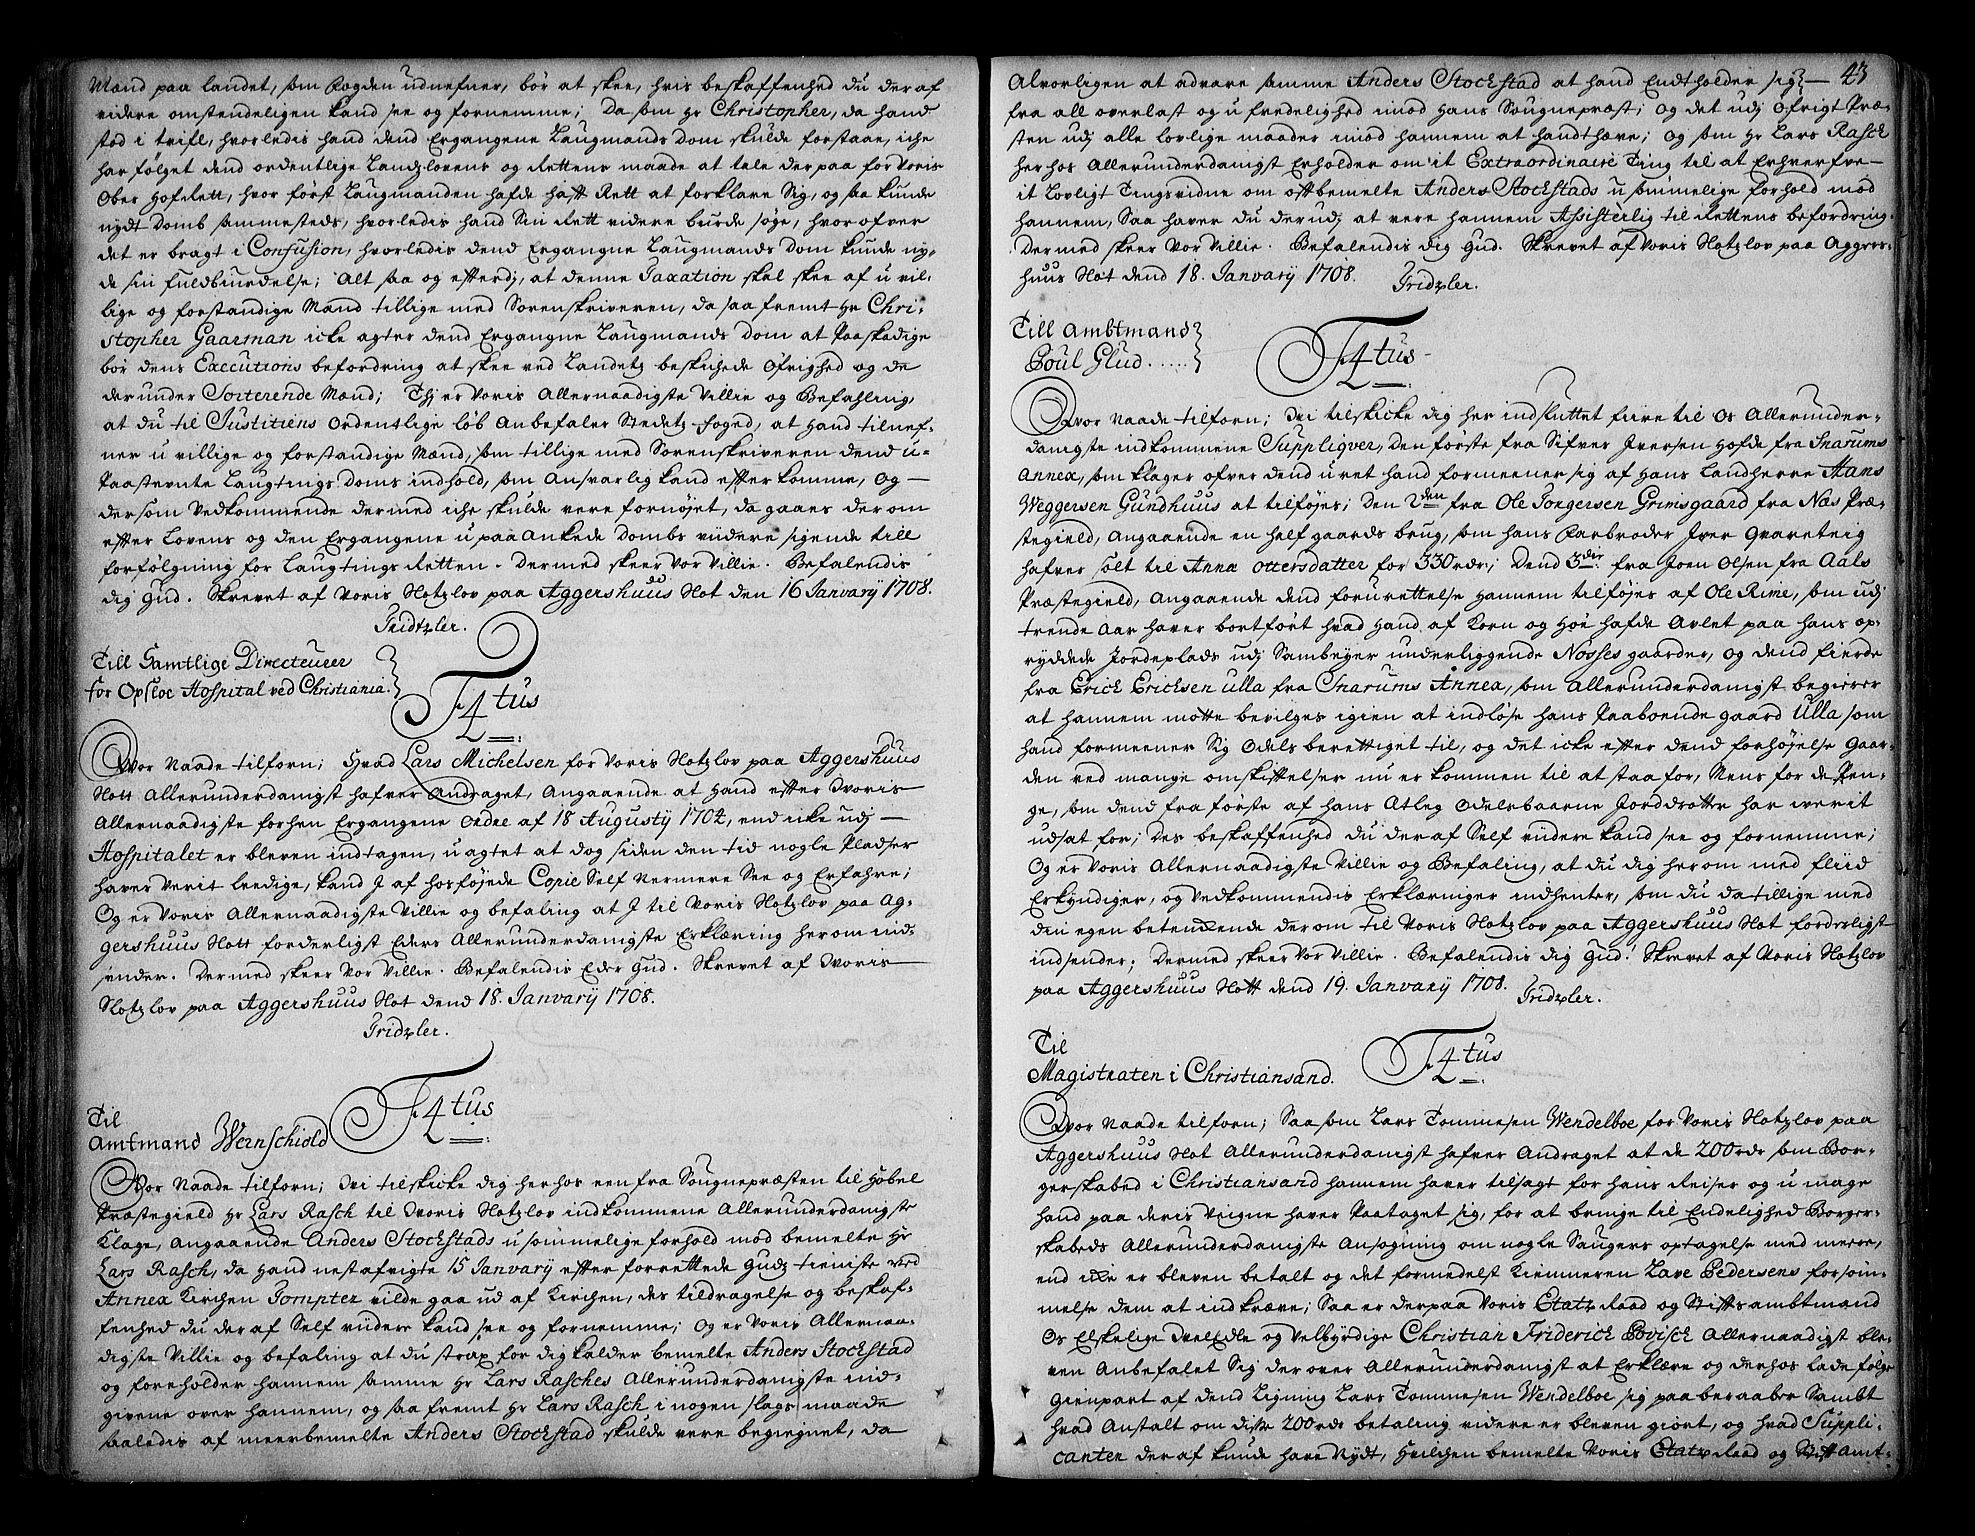 Mænd paa landet, som Fogden udnefner, bør at skee, hvis beskaffenhed du der af
videre omstendeligen kand see og fornemme; Da som Hr Christopher, da hand
stod i trifl, hvorledis hand dend Ergangene Laugmands Dom skulde forstaae, iche
har følget dend ordentlige Landzlovens og Rettens maade at tale der paa for Voris
Ober Hofrett, hvor først Laugmanden hafde hatt Rett at forklare Sig, og saa kunde
nydt Domb sammesteds, hvorledis hand Sin Rett videre burde søge, hvor ofver
det er bragt i Confusion, hvorledis dend Ergangne Laugmands Dom kunde ny-
de sin fuldbiurdelse; Alt saa og efterdj, at denne Taxation skal skee af u vil-
lige og forstandige Mænd tillige med Sorenskriveren, da saa fremt Hr Chri-
stopher Gaarman icke agter dend Ergangne Laugmands Dom at Paaskadige
bør dens Executions befordring at skee ved Landetz beskichede Øfrighed og de
der under Sorterende Mænd; Thj er Voris Allernaadigste Villie og Befahling,
at du til Justitiens Ordentlige løb Anbefaler Stedetz foged, at hand tilnef-
ner u villige og forstandige Mænd, som tillige med Sorenskriveren dend u-
Paastevnte Laugtings Doms indhold, som Ansvarlig kand efter komme, Og
dersom Vedkommende dermed iche skulde vere fornøjet, da gaaes der om
efter Loven og den Ergangene u paa Ankede Dombs viidere sigende till
forfølgning for Laugtings Retten. Dermed skeer Vor Villie. Befalendis
dig Gud. Skrevet af Voris Slotzlov paa Aggershuus Slot den 16 January 1708.
Tridtzler.
Till Samtlige Directeurer
for Opsloe Hospital ved Christiania.
F4tus
Vor Naade tilforn; Hvad Lars Michelsen for Voris Slotzlov paa Aggershuus
Slott Allerunderdanigst hafver Andraget, Angaaende at hand efter Woris
Allernaadigste forhen Ergangene Ordre af 18 Augusty 1704, end icke udj
Hospitalet er bleven indtagen, u agtet at dog siden den tid nogle Pladser
haver Verit leedige, kand I af hosføjede Copie Self Nermere See og Erfahre;
Og er Voris Allernaadigste Villie og befaling at I til Voris Slotzlov paa Ag-
gershuus Slott forderligst Eders Allerunderdanigste Erklæring herom ind-
sender. Dermed skeer Vor Villie. Befalendis Eder Gud. Skrevet af Woris
Slotzlov paa Aggershuus Slot dend 18. January 1708.
Tridzler.
Til
Amtmand Wernschiold
F4tus
Vor Naade tilforn; Wi tilskicke dig herhos een fra Sougnepræsten til Høbel
Præstegield Hr Lars Rasch til Woris Slotzlov indkommene Allerunderdanigste
Klage, Angaaende Anders Stockstads u sommelige forhold mod bemelte Hr
Lars Rasch, da hand nestafvigte 15 January efter forrettede Gudz tieniste ved
Annex Kirchen Tompter vilde gaa ud af Kirchen, des tildragelse og beskaf-
fenhed du der af Self viidere kand see og fornemme; Og er Voris Allernaa-
digste Villie og befaling at du strax for dig kalder bemelte Anders Stockstad
og foreholder hannem samme Hr Lars Rasches Allerunderdanigste ind-
givene over hannem, og saa fremt Hr Lars Rasch i nogen slags maade
saaledis af meerbemelte Anders Stockstad skulde vere begiegnet, da
43
Alvorligen at advare samme Anders Stockstad at hand Endtholder sig
fra all overlast og u fredelighed imod hans Sougnepræst; Og det udj Øfrigt Præ-
sten udj alle lovlige maader imod hannem at handthæve; Og som Hr Lars Rasch
herhos Allerunderdanigst Erholder om it Extraordinaire Ting til at Erhverfve
it Lovligt Tingsvidne om oftbemelte Anders Stockstads u sømmelige forhold mod
hannem, Saa haver du derudj at vere hannem Assisterlig til Rettens befordring.
Dermed skeer Vor Villie. Befalendis dig Gud. Skrevet af Voris Slotzlov paa Aggers-
huus Slot dend 18. January 1708.
Tridzler.
Till Ambtmand
Poul Glud.....
F4tus
Vor Naade tilforn; Wi tilskicke dig her indsluttet fiire til Os Allerunder-
danigste indkommene Suppliqver, den første fra Sifver Iversen Hofde fra Snarums
Annex, som klager ofver dend uret hand formeener sig af hans Landherre Hans
Weggersen Gundhuus at tilføjes; Den 2den fra Ole Torgersen Grimsgaard fra Næs Præ-
stegield, Angaaende en half gaards brug, som hans Farbroder Iver Qvareteig
hafver solt til Anna Ottersdatter for 330 rdr; Dend 3die fra Joen Olsen fra Aals
Præstegield, Angaaende dend forurettelse hannem tilføjes af Ole Rime, som udj
trende Aar haver bortført hvad hand af Korn og Høe hafde Avlet paa hans op-
ryddede Jordeplads udj Sambeyer underliggende Nosses gaarder, og dend fierde
fra Erich Erichsen Ulla fra Snarums Annex, som Allerunderdanigst begierer
at hannem motte bevilges igien at indløse hans Paaboende gaard Ulla som
hand formeener Sig Odels berettiget til, og det icke efter dend forhøjelse Gaar-
den ved mange omskiftelser nu er kommen til at staa for, Mens for de Pen-
ge, som dend fra første af hans Atleg Odelsbaarne Jorddrotter har werit
udsat for; Des beskaffenhed du der af Self viidere kand see og fornemme;
Og er Voris Allernaadigste Villie og Befaling, at du dig herom med fliid
Erkyndiger, og Vedkommendis Erklæringer indhenter, som du da tillige med
din egen betenkende derom til Voris Slotzlov paa Aggershuus Slot forderligst
indsender; Dermed skeer Vor Villie. Befalendis dig Gud. Skrevet af Voris Slotzlov
paa Aggershuus Slott dend 19. January 1708.
Tridzler.
Til
Magistraten i Christiansand.
F4tus
Vor Naade tilforn; Saa som Lars Tommesen Wendelboe, for Voris Slotzlov paa
Aggershuus Slot Allerunderdanigst hafver Andraget at de 200 rdr som Bor-
gerskabed i Christiansand hannem haver tilsagt for hans Reiser og u mage
hand paa deris Veigne haver Paataget sig, for at bringe til Endelighed Borger-
skabeds Allerunderdanigste Ansøgning om nogle Saugers optagelse med mere,
end icke er bleven betalt og det formedelst Kiemneren Lave Pedersens forsøm-
melse dem at indkræve; Saa er derpaa Voris Etatz Raad og Stiftsambtmand
Os Elskelige Wel Edle og Velbyrdige Christian Friderich Povisch Allernaadigst ble-
ven Anbefalet Sig der over Allerunderdanigst at Erklære og derhos lade følge
Gienpart af dend Ligning Lars Tommesen Wendelboe sig paaberaaber Sambt
hvad Anstalt om disse 200 rdr betaling videre er bleven giort, og hvad Suppli-
canten deraf kunde have Nydt, Hvilchen bemelte Voris Etatz Raad og Stift Amt-